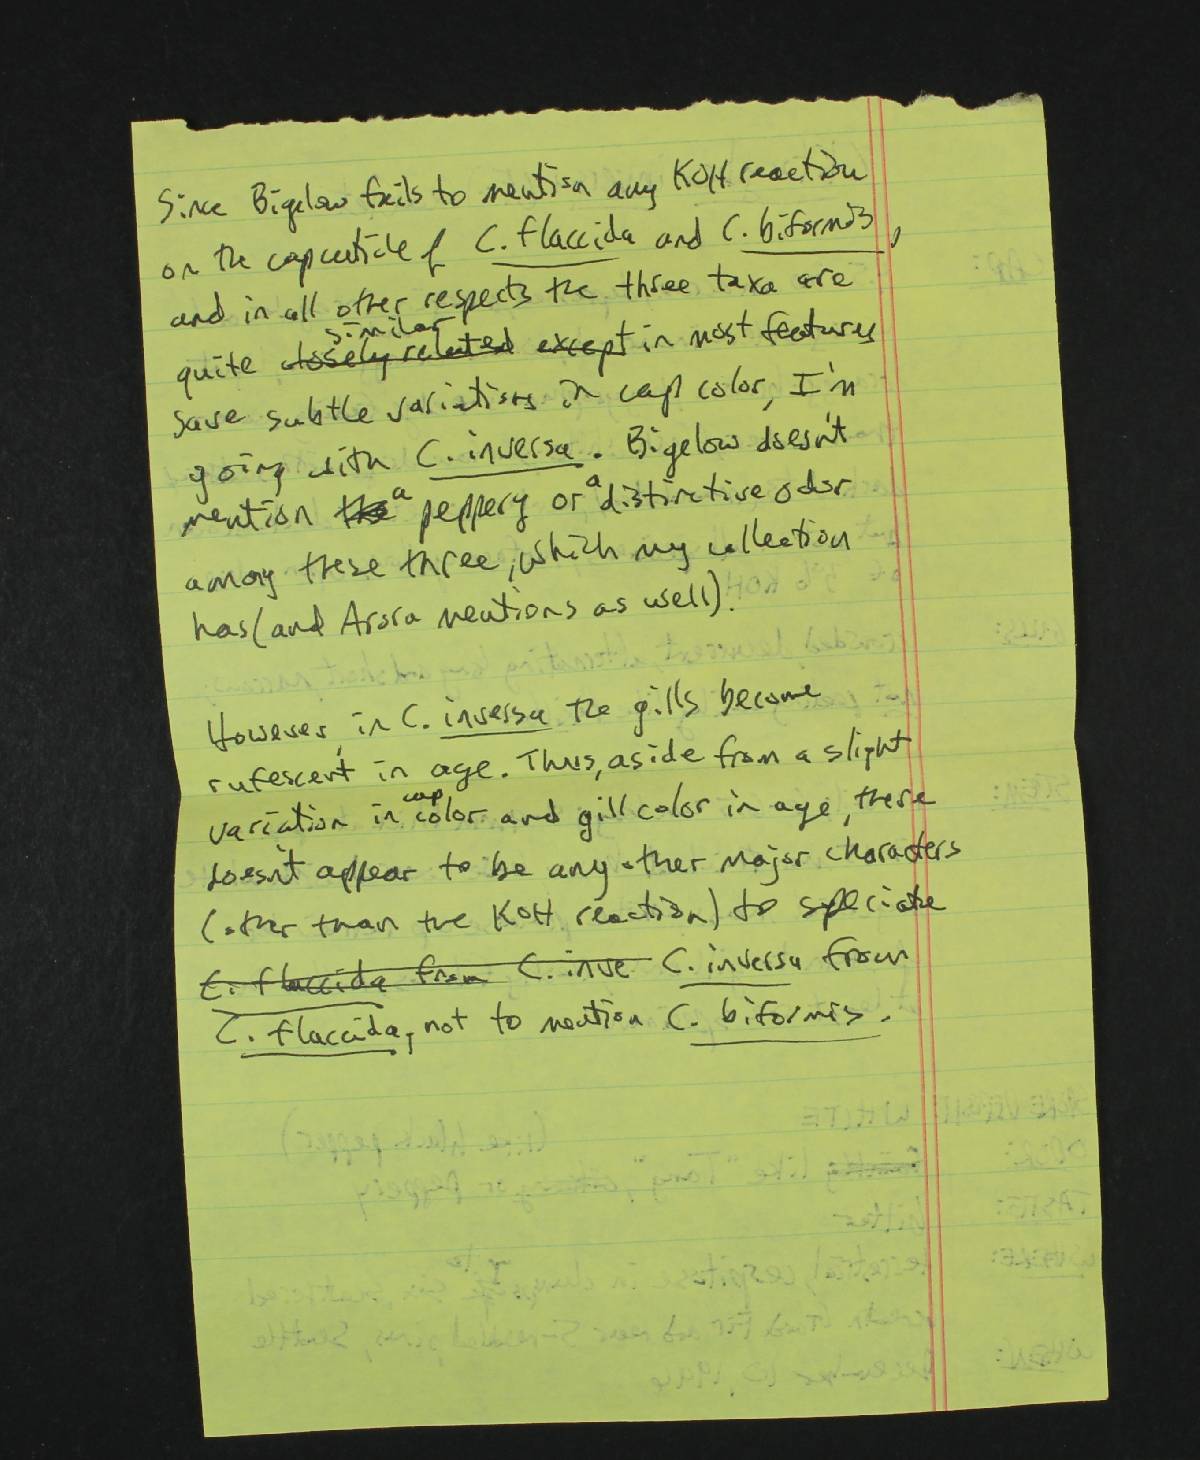 Since Bigelow fails to mention any KOH reaction
on the cap cuticle of C. flaccida and C. biformis,
and in all other respects the three taxa are
similar
quite closely related except in most features
save subtle variations in cap color, I'm
going with C. inversa. Bigelow doesn't
mention the a peppery or a distinctive odor
among these three, which my collection
has (and Arora mentions as well).
However, in C. inversa the gills become
rufescent in age. Thus, aside from a slight
cap
variation in color and gill color in age, there
doesn't appear to be any other major characters
(other than the KOH reaction) to speciate
C. flaccida from C. inve C. inversa from
C. flaccida, not to mention C. biformis.